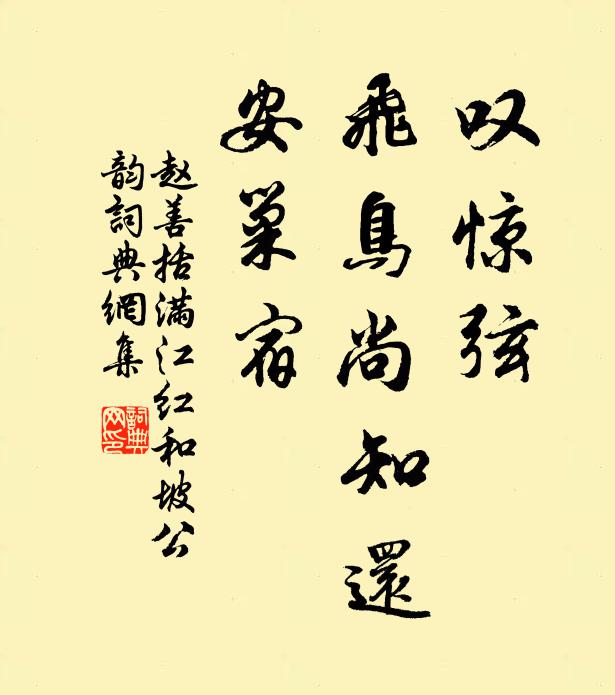 叹惊弦
飛鳥尚知還
安巢宿
赵善括满江红和坡公
韵詞典網集
詞典
网印